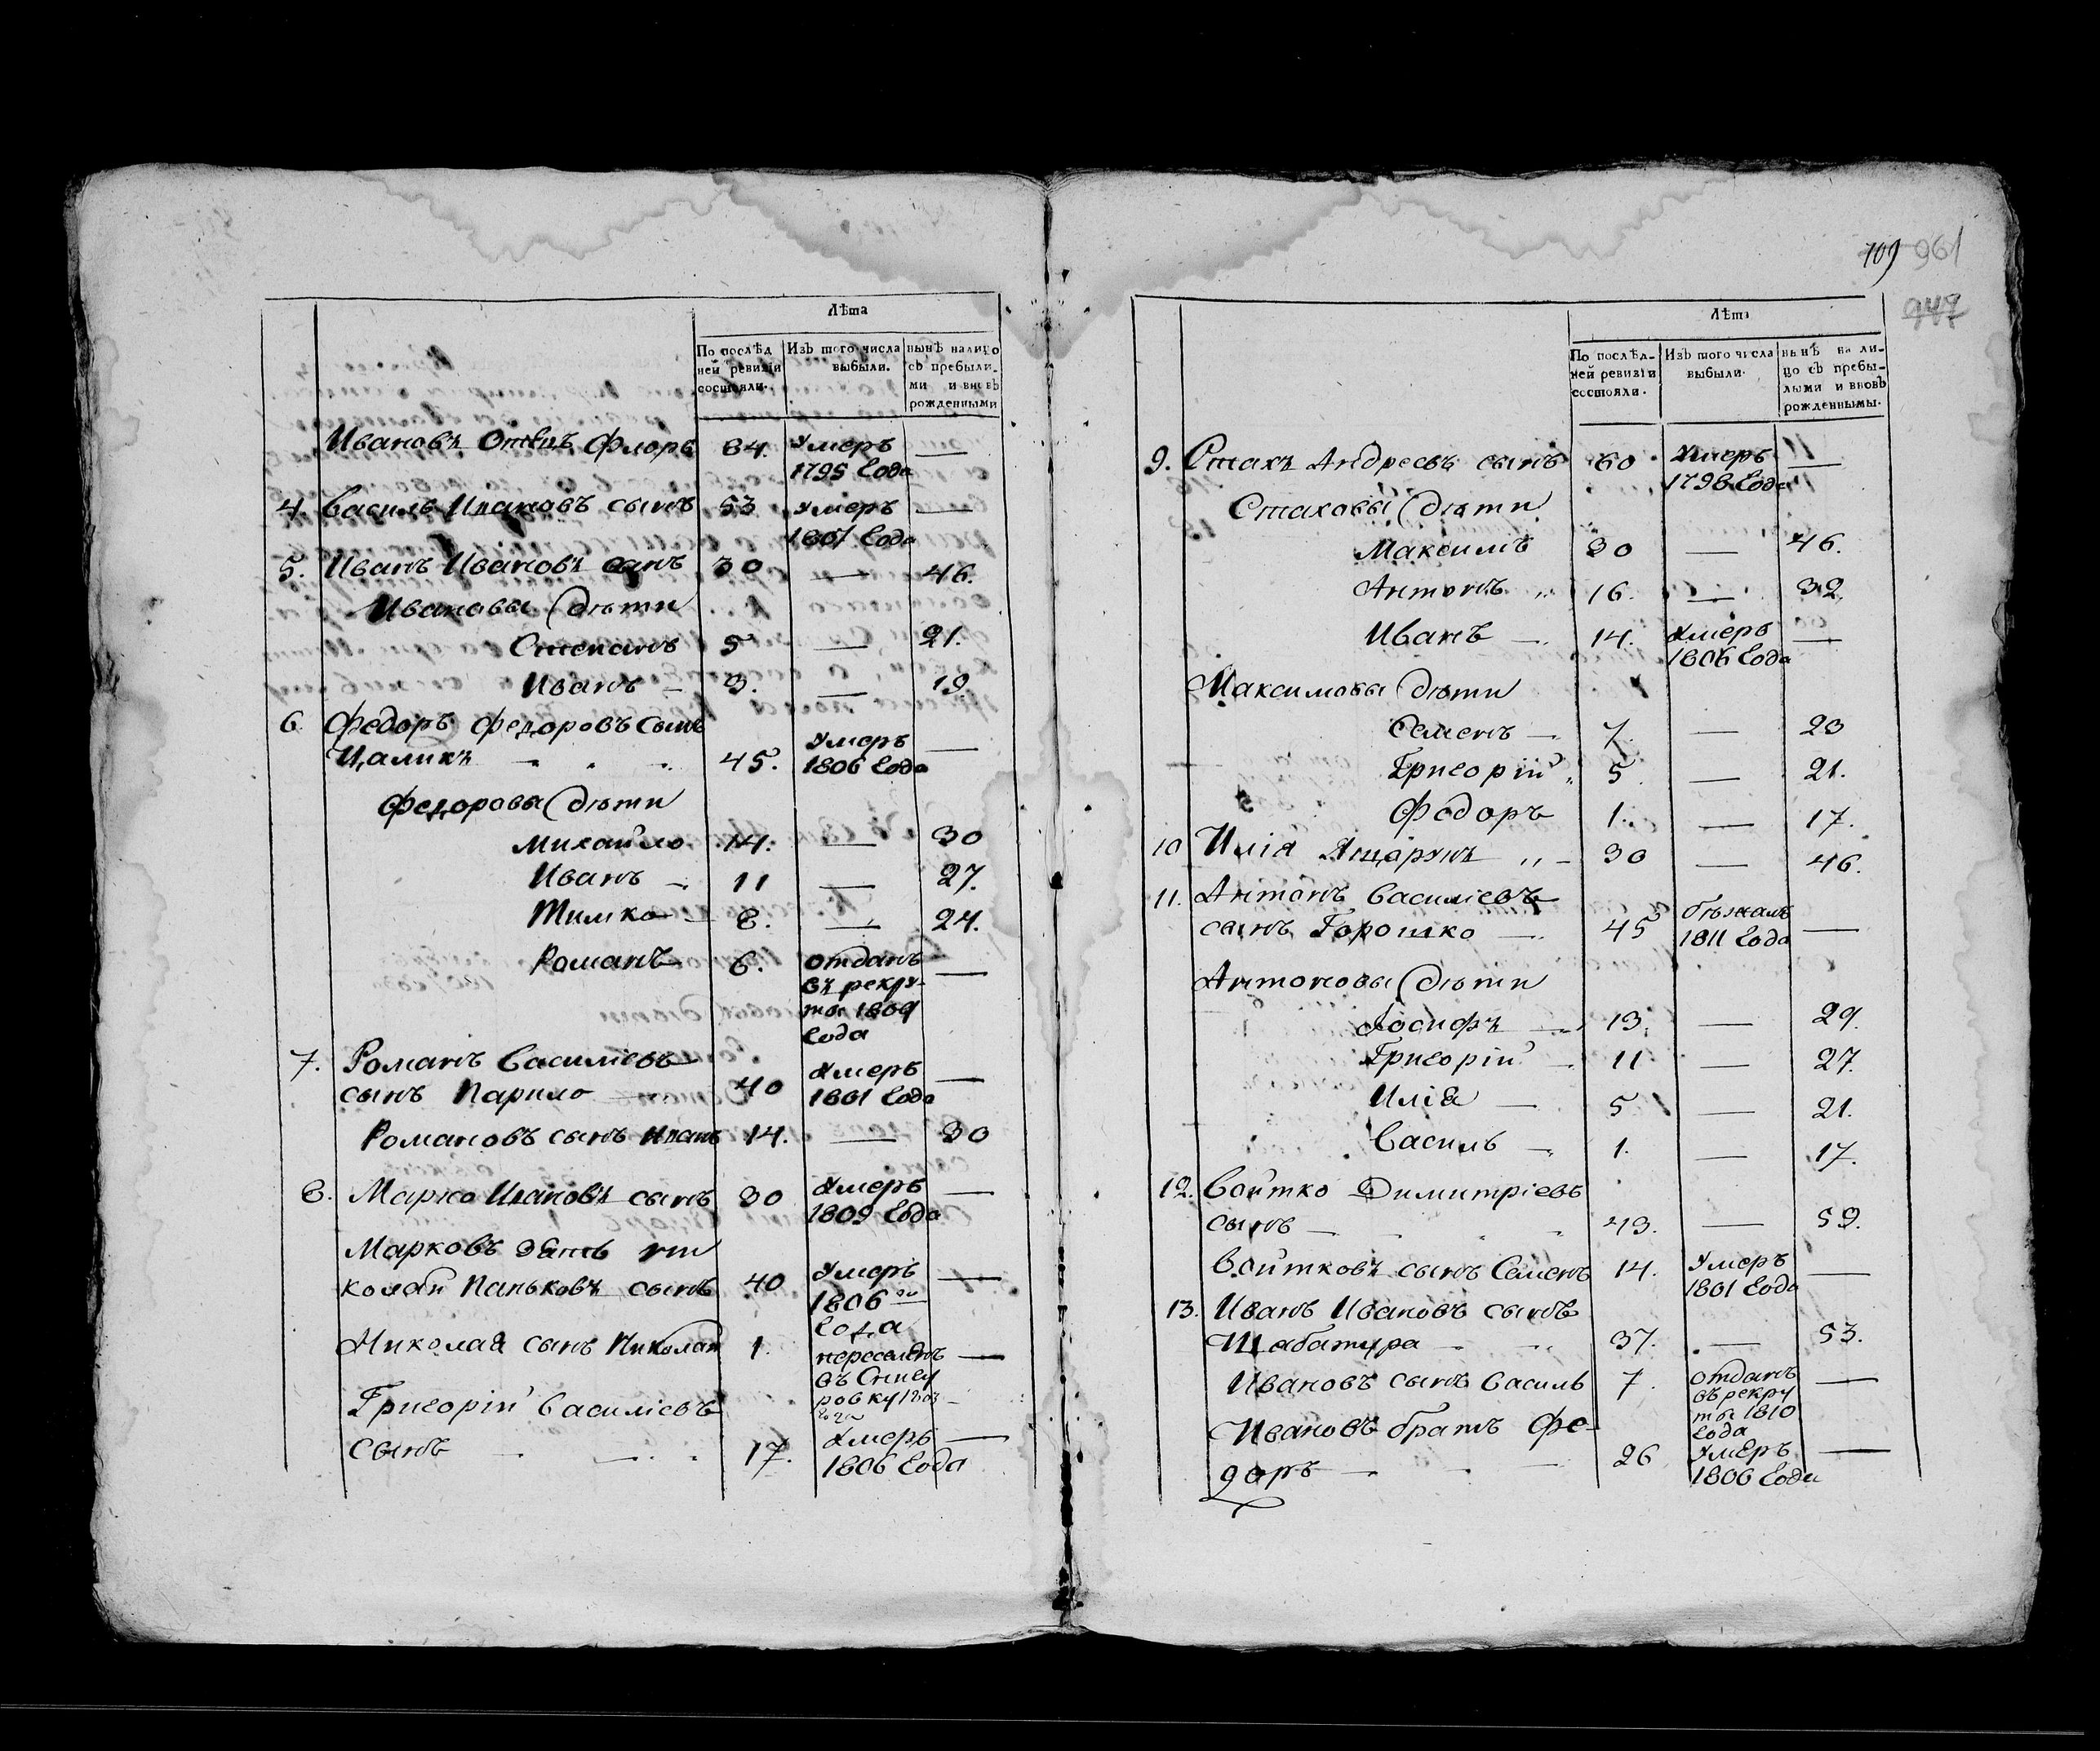 Лѣта
По послѣд
ней ревизіи
состояли.
Изъ того числа
выбыли.
нынѣ налицо
съ пребыли-
ми и вновь
рожденными
Ивановъ Отецъ Флоръ 84. Умеръ —
1795 Года
4. Василь Ивановъ сынъ 53 Умеръ —
1807 Года
5. Иванъ Ивановъ сынъ 30 — 46.
Ивановы Дѣти
Степанъ 5 — 21.
Иванъ — 3. — 19.
6. Федоръ Федоровъ сынъ
Цаликъ 45. Умеръ —
1806 Года
Федоровы Дѣти
Михайло 14. — 30
Иванъ — 11 — 27.
Тимко — 8. — 24.
Романъ 6. отданъ —
въ рекру-
ты 1809
Года
7. Романъ Василіевъ
сынъ Парило — 40 Умеръ —
1801 Года
Романовъ сынъ Иванъ 14. — 30
8. Марко Ивановъ сынъ 30 Умеръ —
1809 Года
Марковъ зять Ни
колай Паньковъ сынъ 40 Умеръ —
1806 го
Года
Николая сынъ Николай 1. переселенъ —
въ
ровку
года
Григорій Василіевъ
сынъ 17. Умеръ —
1806 Года
109 961
947
Лѣта
По послѣд-
ней ревизіи
состояли.
Изъ того числа
выбыли.
нынѣ на ли-
цо съ пребы-
лыми и вновь
рожденнымы.
9. Стахъ Андреевъ сынъ 60 Умеръ —
1798 Года
Стаховы Дѣти
Максимъ 30 — 46.
Антонъ 16. — 32.
Иванъ — 14. Умеръ —
1806 Года
Максимовы Дѣти
Семенъ — 7. — 23
Григорій 5 — 21.
Федоръ 1. — 17.
10 Илія — 30 — 46.
11. Антонъ Василіевъ
сынъ Горошко — 45 бѣжалъ —
1811 Года
Антоновы Дѣти
Іосифъ — 13. — 29.
Григорій — 11 — 27.
Илія — 5 — 21.
Василь — 1. — 17.
12. Войтко Димитріевъ
сынъ — 43. — 59.
Войтковъ сынъ Семенъ 14. Умеръ —
1801 Года
13. Иванъ Ивановъ сынъ
Шабатура 37. — 53.
Ивановъ сынъ Василь 7. отданъ —
въ рекру
ты 1810
Года
Ивановъ братъ Фе-
доръ — 26 Умеръ —
1806 Года